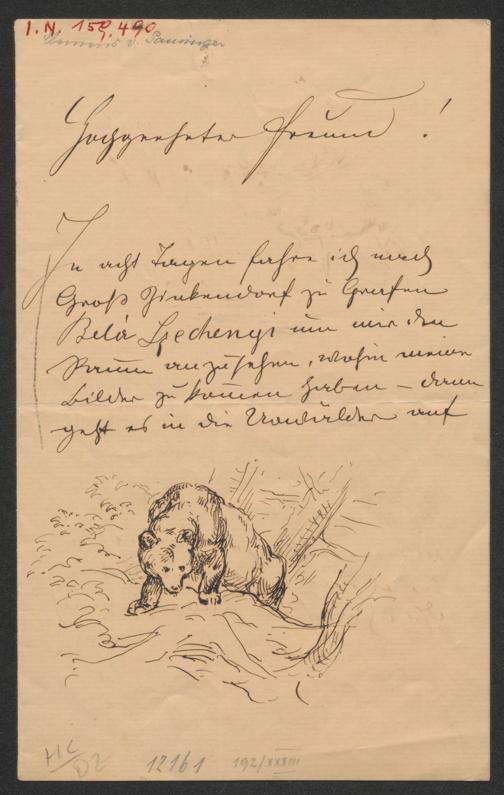 I.N. 159.490
Clemens v. Pausinger
Hochgeehrter Freund!
In acht Tagen fahre ich nach
Groß Zinkendorf zu Grafen
Belá Szechenyi um mir den
Raum anzusehen, wohin meine
Bilder zu kommen haben – dann
geht es in die Urwälder auf
HC
DZ
12161 192/XXXIII